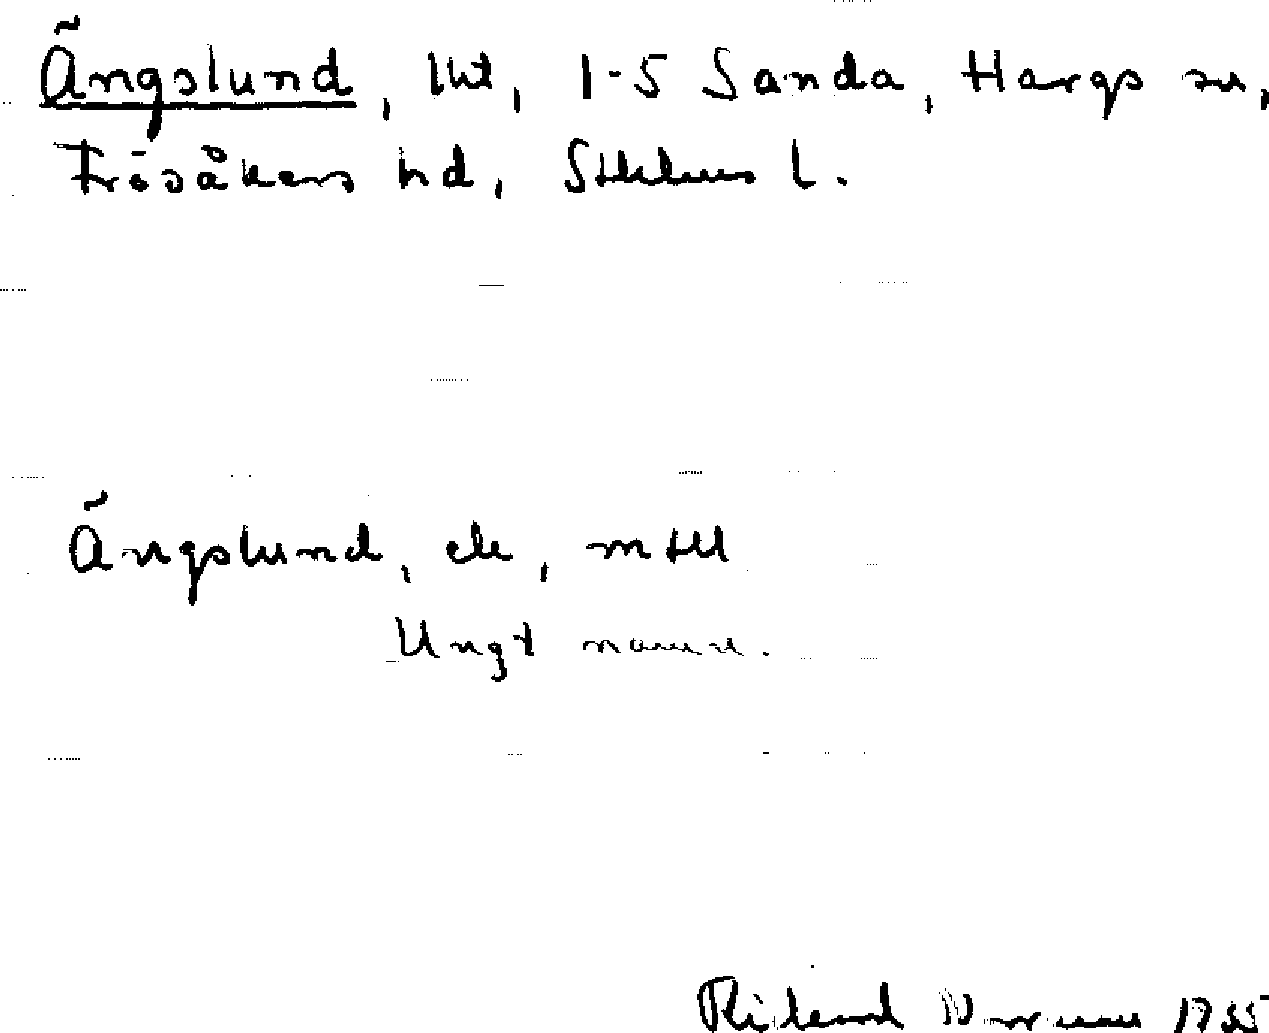 Ängslund, lht, 1-5 Sanda, Hargs sn,
Frösåkers hd, Sthlms l.
Ängslund, ele, mtll
Ungt namn.
Rikard Norrman 1935